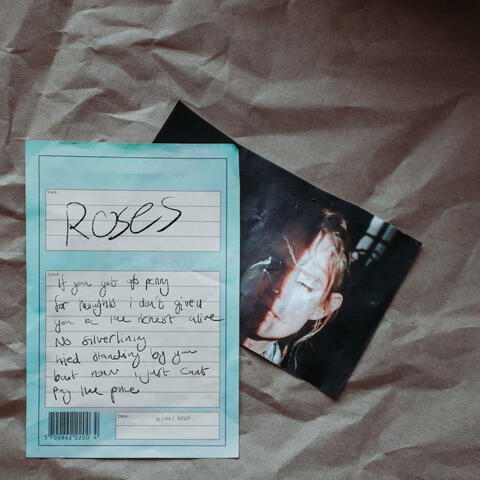 Track:
Roses
Lyrics:
If you got a penny
for thoughts i don't give it
you be the richest alive
No silverlining
tried standing by you
but now i just can't
pay the price
Date:
21/02/2020
5 700862 2200 4